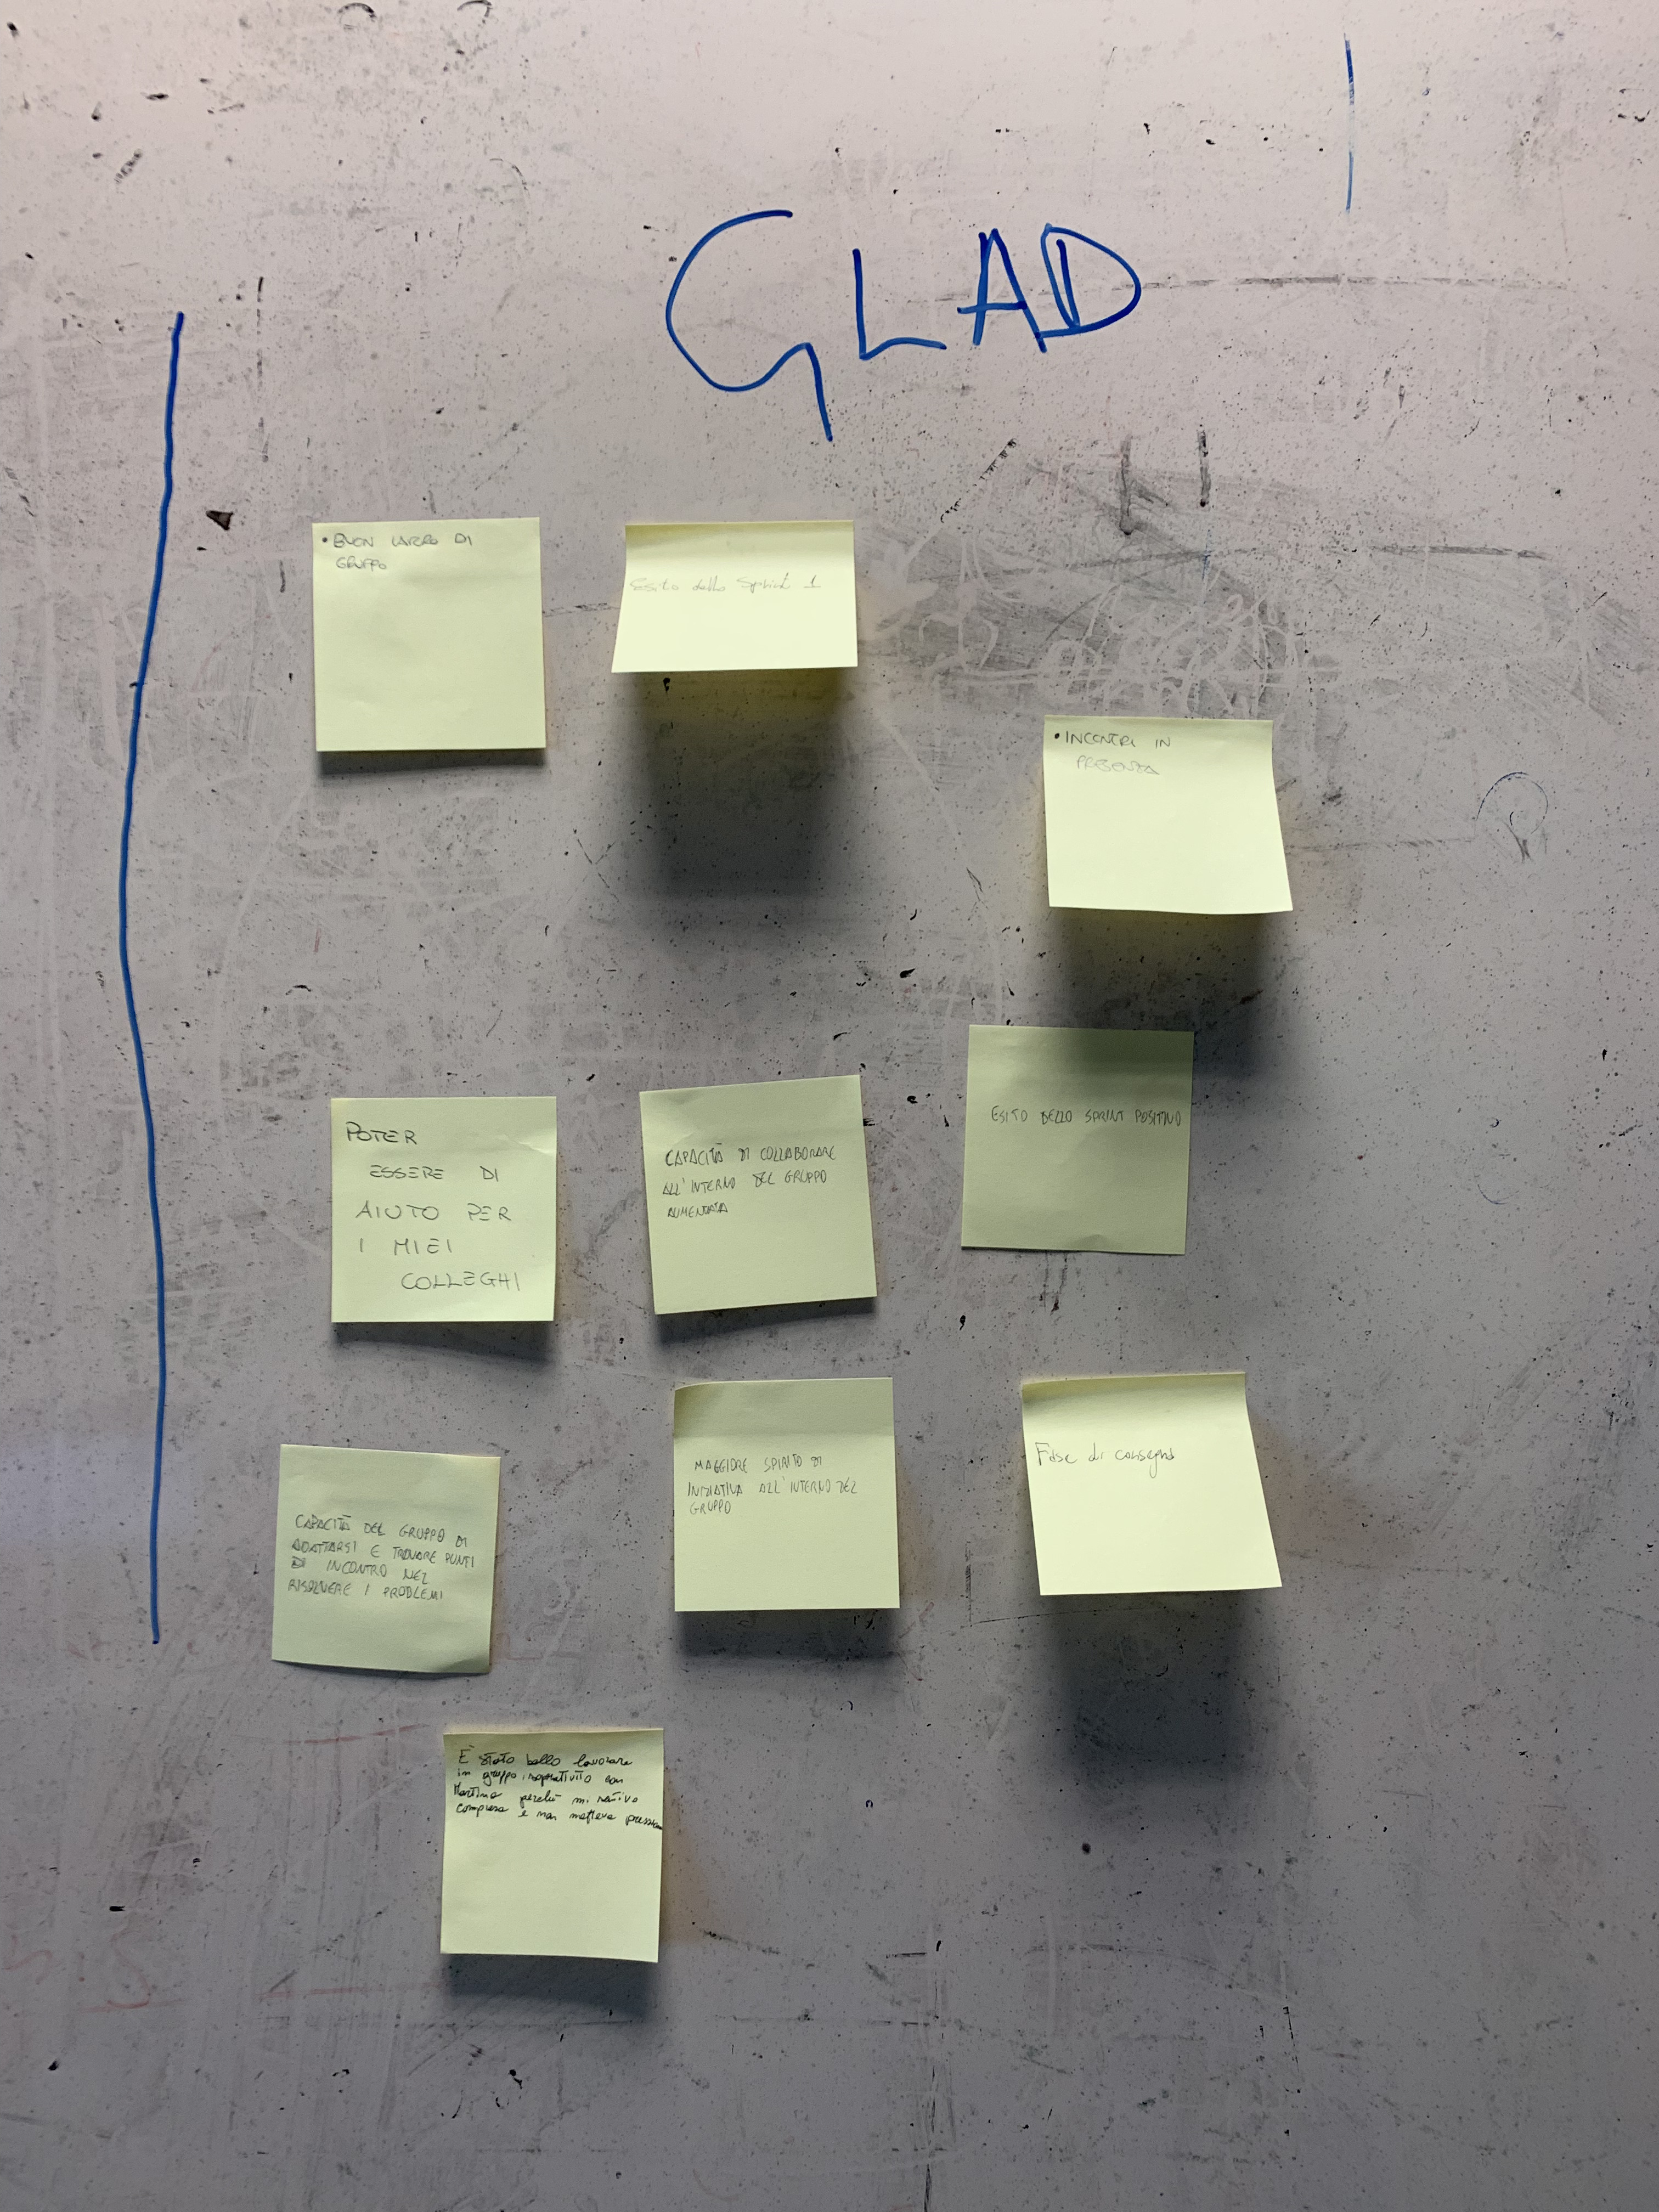 GLAD
• BUON LAVORO DI
GRUPPO
Esito dello Sprint 1
• INCONTRI IN
PRESENZA
POTER
ESSERE DI
AIUTO PER
I MIEI
COLLEGHI
CAPACITÀ DI COLLABORARE
ALL'INTERNO DEL GRUPPO
AUMENTATA
ESITO DELLO SPRINT POSITIVO
CAPACITÀ DEL GRUPPO DI
ADATTARSI E TROVARE PUNTI
DI INCONTRO NEL
RISOLVERE I PROBLEMI
MAGGIORE SPIRITO DI
INIZIATIVA ALL'INTERNO DEL
GRUPPO
Fase di consegna
È stato bello lavorare
in gruppo, con
Martina perché mi sentivo
compresa e non metteva pressione